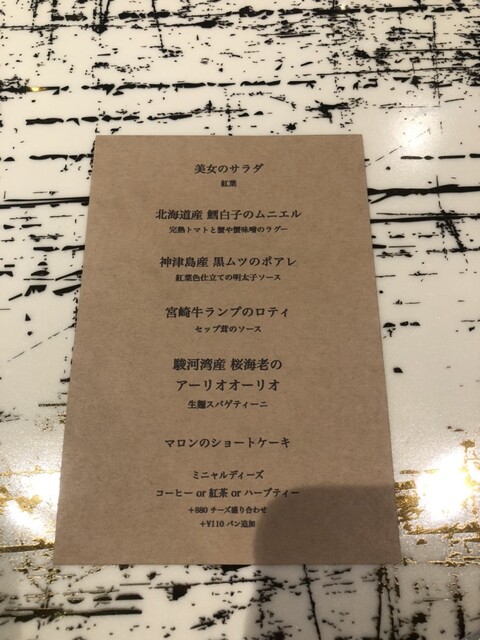 美女のサラダ
紅葉
北海道産 鱈白子のムニエル
完熟トマトと蟹や蟹味噌のラグー
神津島産 黒ムツのポアレ
紅葉色仕立ての明太子ソース
宮崎牛ランプのロティ
セップ茸のソース
駿河湾産 桜海老の
アーリオオーリオ
生麺スパゲティーニ
マロンのショートケーキ
ミニャルディーズ
コーヒー or 紅茶 or ハーブティー
+880 チーズ盛り合わせ
+¥110 パン追加